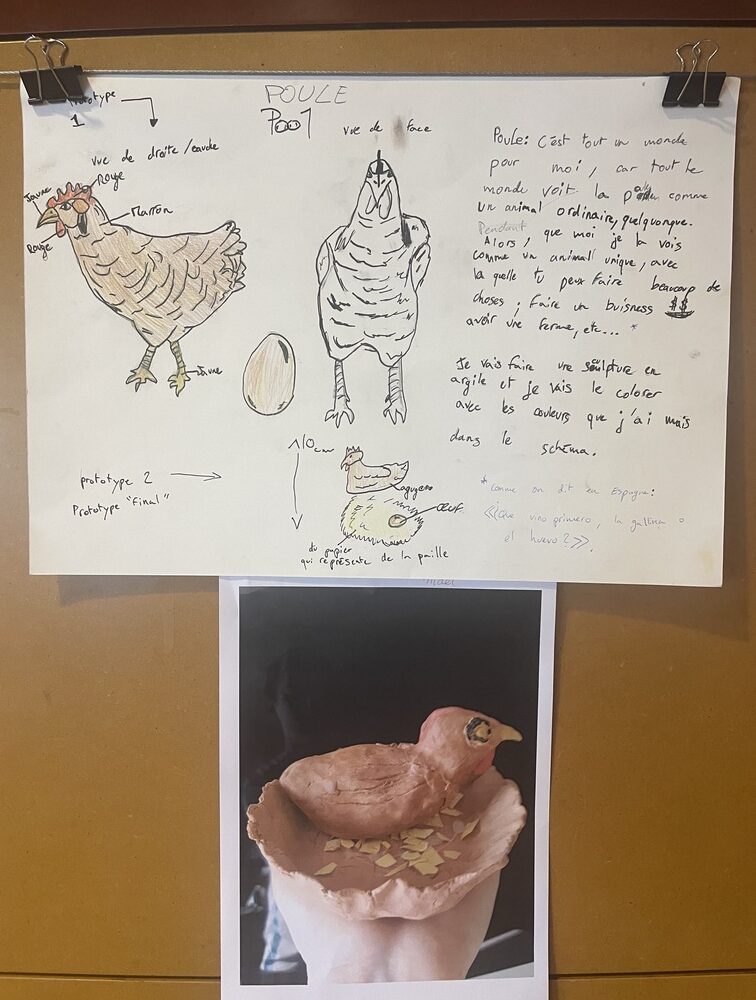 Prototype
1
POULE
Poo1
vue de face
vue de droite/
Jaune
Rouge
Marron
Rouge
Jaune
Poule: C'est tout un monde
pour moi, car tout le
monde voit la comme
un animal ordinaire, quelquonque.
Pendant
Alors, que moi je la vois
comme un animal unique, avec
la quelle tu peux faire beaucoup de
choses; faire un buisness $$
avoir une ferme, etc... *
Je vais faire une sculpture en
argile et je vais le colorer
avec les couleurs que j'ai mais
dans le schéma.
* comme on dit en Espagne:
«Que vino primero, la gallina o
el huevo?».
prototype 2
Prototype "final"
10cm
Œuf
du papier
qui représente de la paille